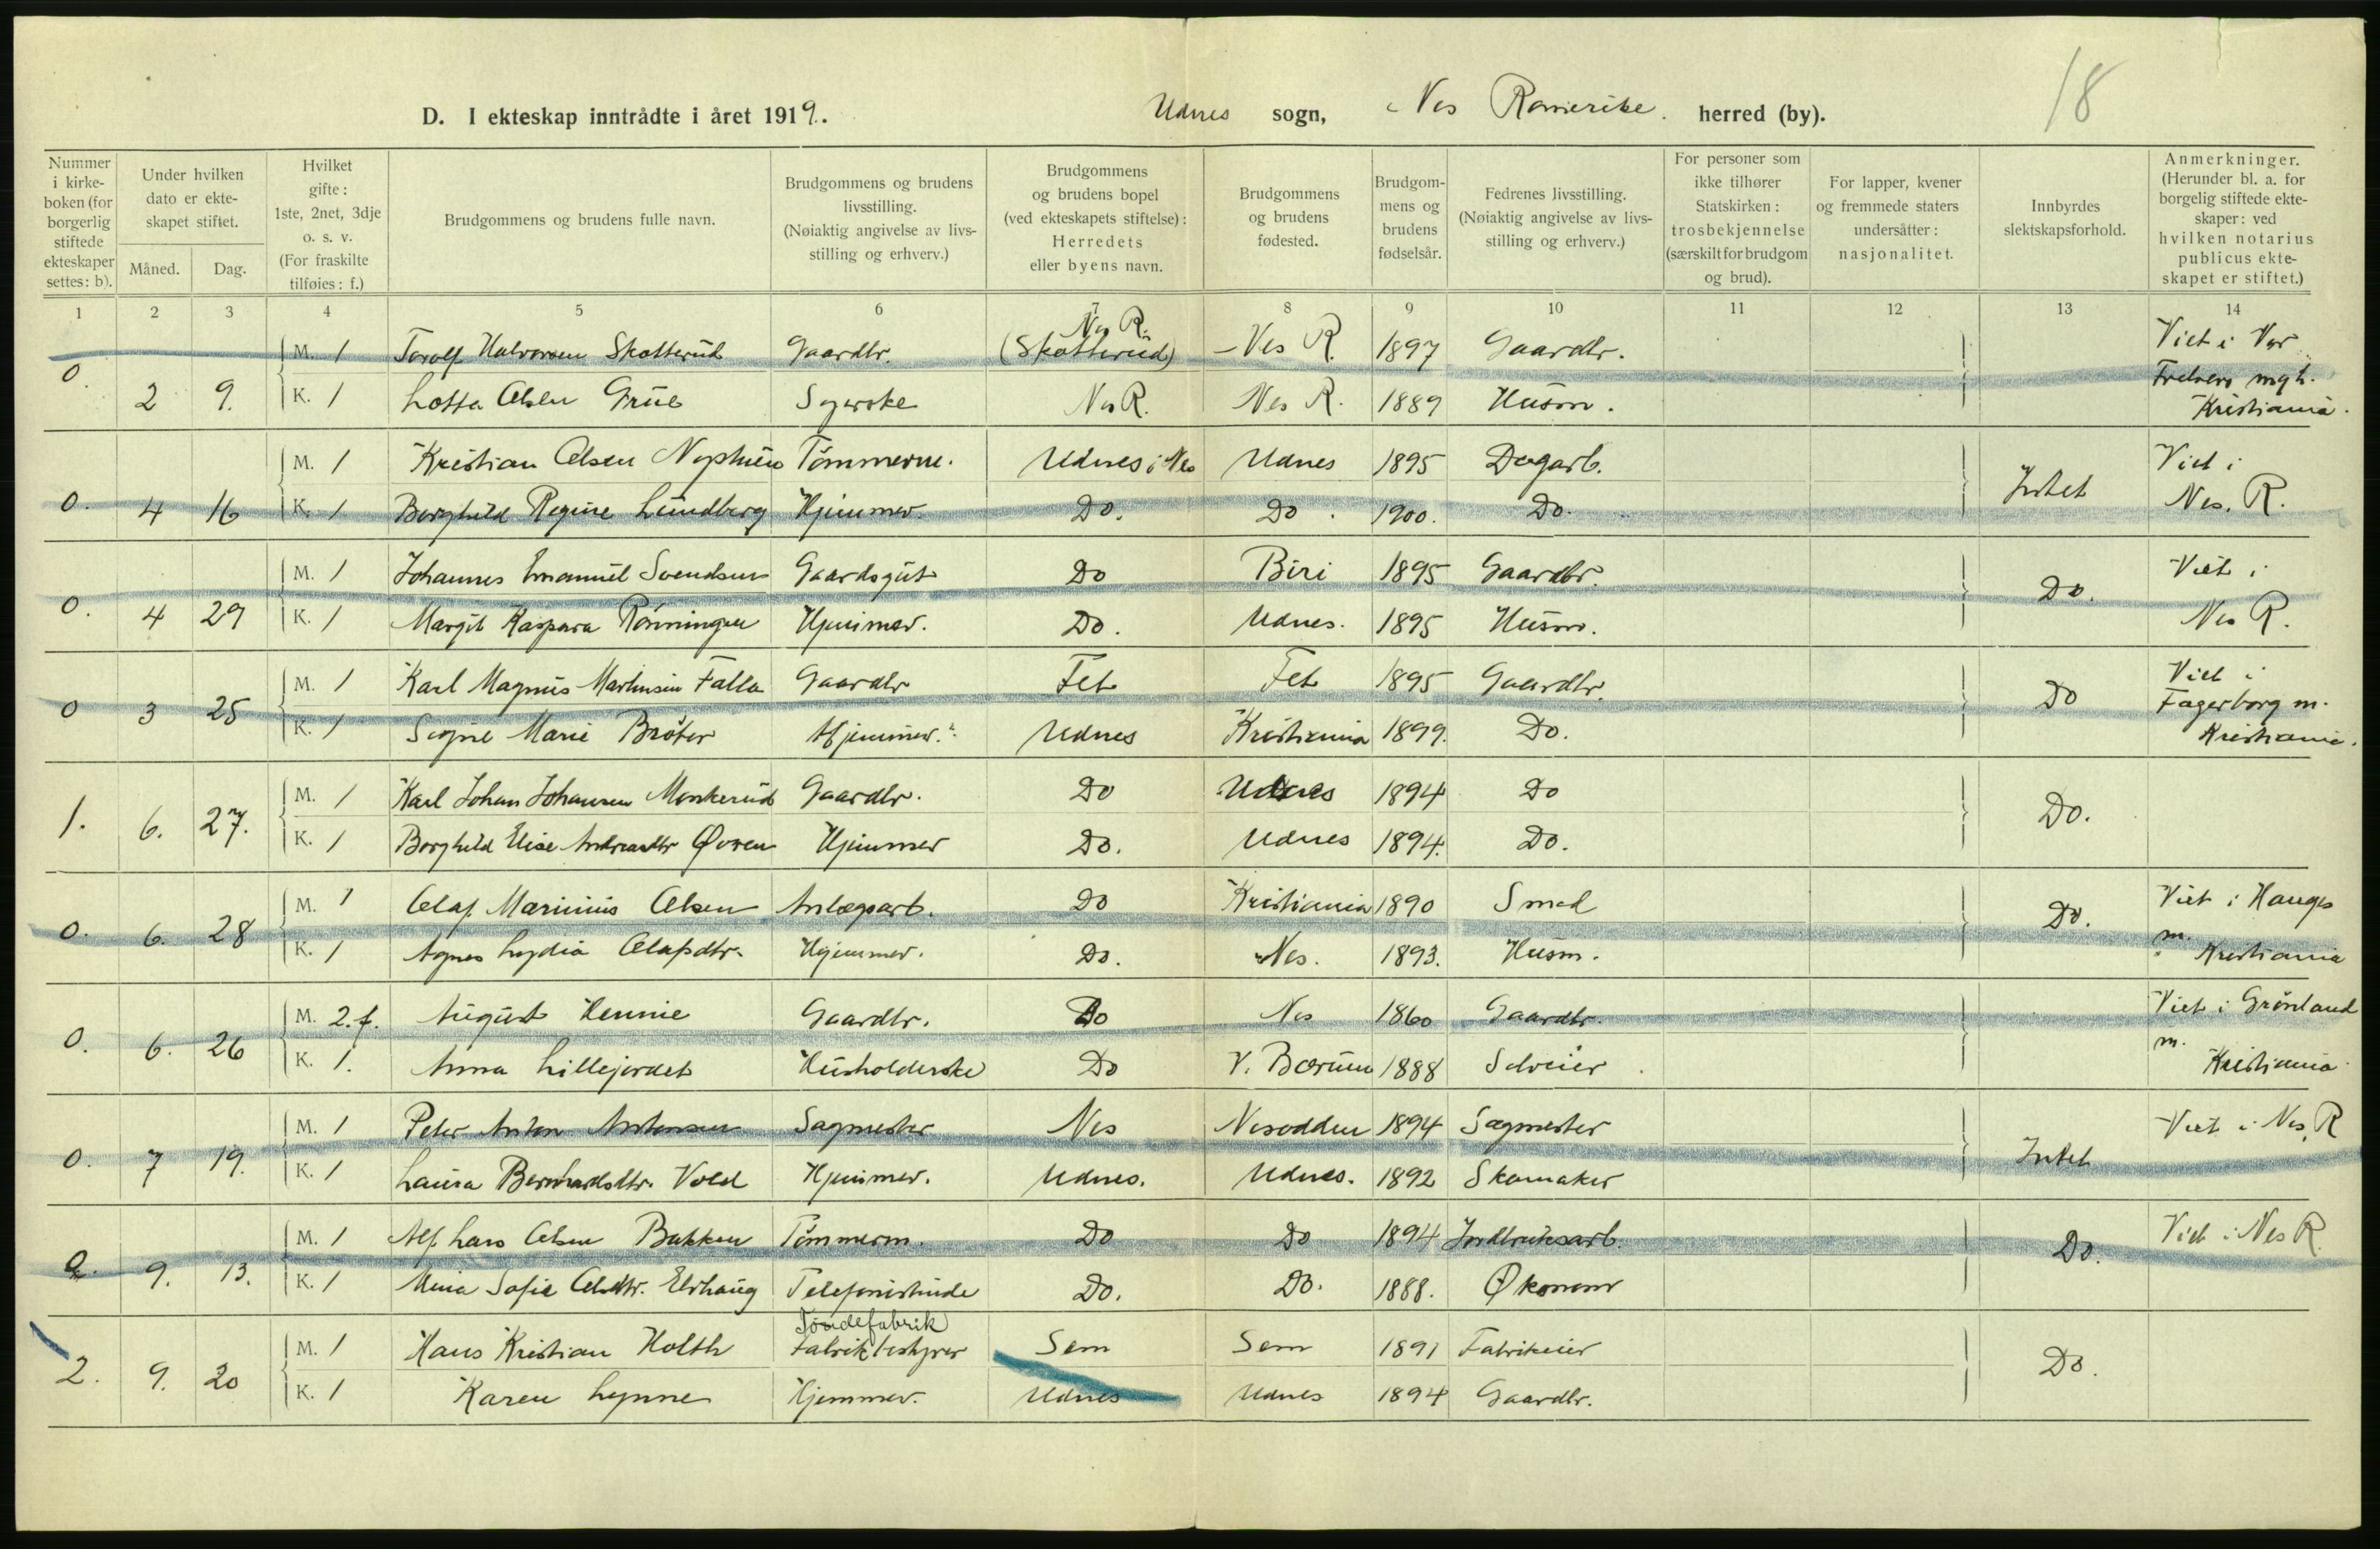 18
D. I ekteskap inntrådte i året 1919. Udnes sogn, Nes Romerike. herred (by).
Nummer i kirke-boken (for borgerlig stiftede ekteskaper settes: b).
Under hvilken dato er ekte-skapet stiftet.
Måned. Dag.
Hvilket gifte: 1ste, 2net, 3dje o. s. v. (For fraskilte tilføies: f.)
Brudgommens og brudens fulle navn.
Brudgommens og brudens livsstilling. (Nøiaktig angivelse av livs-stilling og erhverv.)
Brudgommens og brudens bopel (ved ekteskapets stiftelse): Herredets eller byens navn.
Brudgommens og brudens fødested.
Brudgom-mens og brudens fødselsår.
Fedrenes livsstilling. (Nøiaktig angivelse av livs-stilling og erhverv.)
For personer som ikke tilhører Statskirken: trosbekjennelse (særskilt for brudgom og brud).
For lapper, kvener og fremmede staters undersåtter: nasjonalitet.
Innbyrdes slektskapsforhold.
Anmerkninger. (Herunder bl. a. for borgelig stiftede ekte-skaper: ved hvilken notarius publicus ekte-skapet er stiftet.)
1 2 3 4 5 6 7 8 9 10 11 12 13 14
M. 1 Torolf Halvorsen Skotterud Gaardbr. Nes R. (Skotterud) Nes R. 1897 Gaardbr. Viet i Vor
0. 2 9. K. 1 Lotta Olsen Grue Syerske Nes R. Nes R. 1889 Husm. Frelsers mgh. Kristiania.
M. 1 Kristian Olsen Tømmerm. Udnes i Nes Udnes 1895 Dagarb. Viet i
0. 4 16 K. 1 Borghild Regine Lundberg Hjemmev. Do. Do. 1900. Do. Intet Nes. R.
M. 1 Johannes Emanuel Svendsen Gaardsgut Do Biri 1895 Gaardbr. Viet i
0. 4 29 K. 1 Margit Kaspara Rønningen Hjemmev. Do. Udnes. 1895 Husm. Do. Nes R.
M. 1 Karl Magnus Martinsen Falla Gaardbr Fet Fet 1895 Gaardbr. Viet i
0 3 25 K. 1 Signe Marie Bråter Hjemmev. Udnes Kristiania 1899. Do. Do Fagerborg m. Kristiania.
M. 1 Karl Johan Johansen Monkerud Gaardbr. Do Udnes 1894 Do
1. 6. 27. K. 1 Borghild Elise Andreasdtr Øvren Hjemmev Do. Udnes 1894. Do. Do.
M. 1 Olaf Marinius Olsen Anlægsarb. Do Kristiania 1890 Smed Viet i Hauges
0. 6. 28 K. 1 Agnes Lydia Olafsdtr. Hjemmev. Do. Nes. 1893. Husm. Do. m. Kristiania
M. 2. f. August Hennie Gaardbr. Do Nes 1860 Gaardbr. Viet i Grønland
0. 6. 26 K. 1. Anna Lillejordet Husholderske Do V. Bærum 1888 Selveier m. Kristiania
M. 1 Peter Anton Antonsen Sagmester Nes Nesodden 1894 Sagmester Viet i Nes R
0. 7 19. K. 1 Laura Bernhardsdtr. Vold Hjemmev. Udnes. Udnes. 1892 Skomaker Intet
M. 1 Alf Lars Olsen Bakken Tømmerm. Do Do 1894 Jordbruksarb. Viet i Nes R.
0. 9. 13. K. 1 Mina Sofie Olsdtr. Elvhaug Telefonistinde Do. Do. 1888. Økonom Do.
M. 1 Hans Kristian Holth Tøndefabrik Fabrikbestyrer Sem Sem 1891 Fabrikeier
2. 9. 20 K. 1 Karen Lynne Hjemmev. Udnes Udnes 1894 Gaardbr. Do.